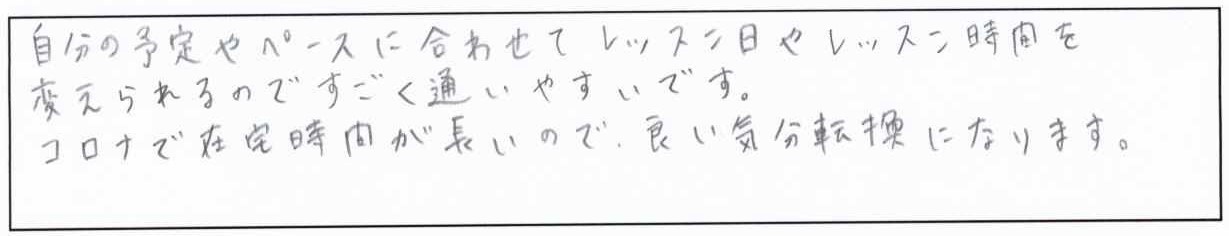 自分の予定やペースに合わせてレッスン日やレッスン時間を
変えられるのですごく通いやすいです。
コロナで在宅時間が長いので、良い気分転換になります。